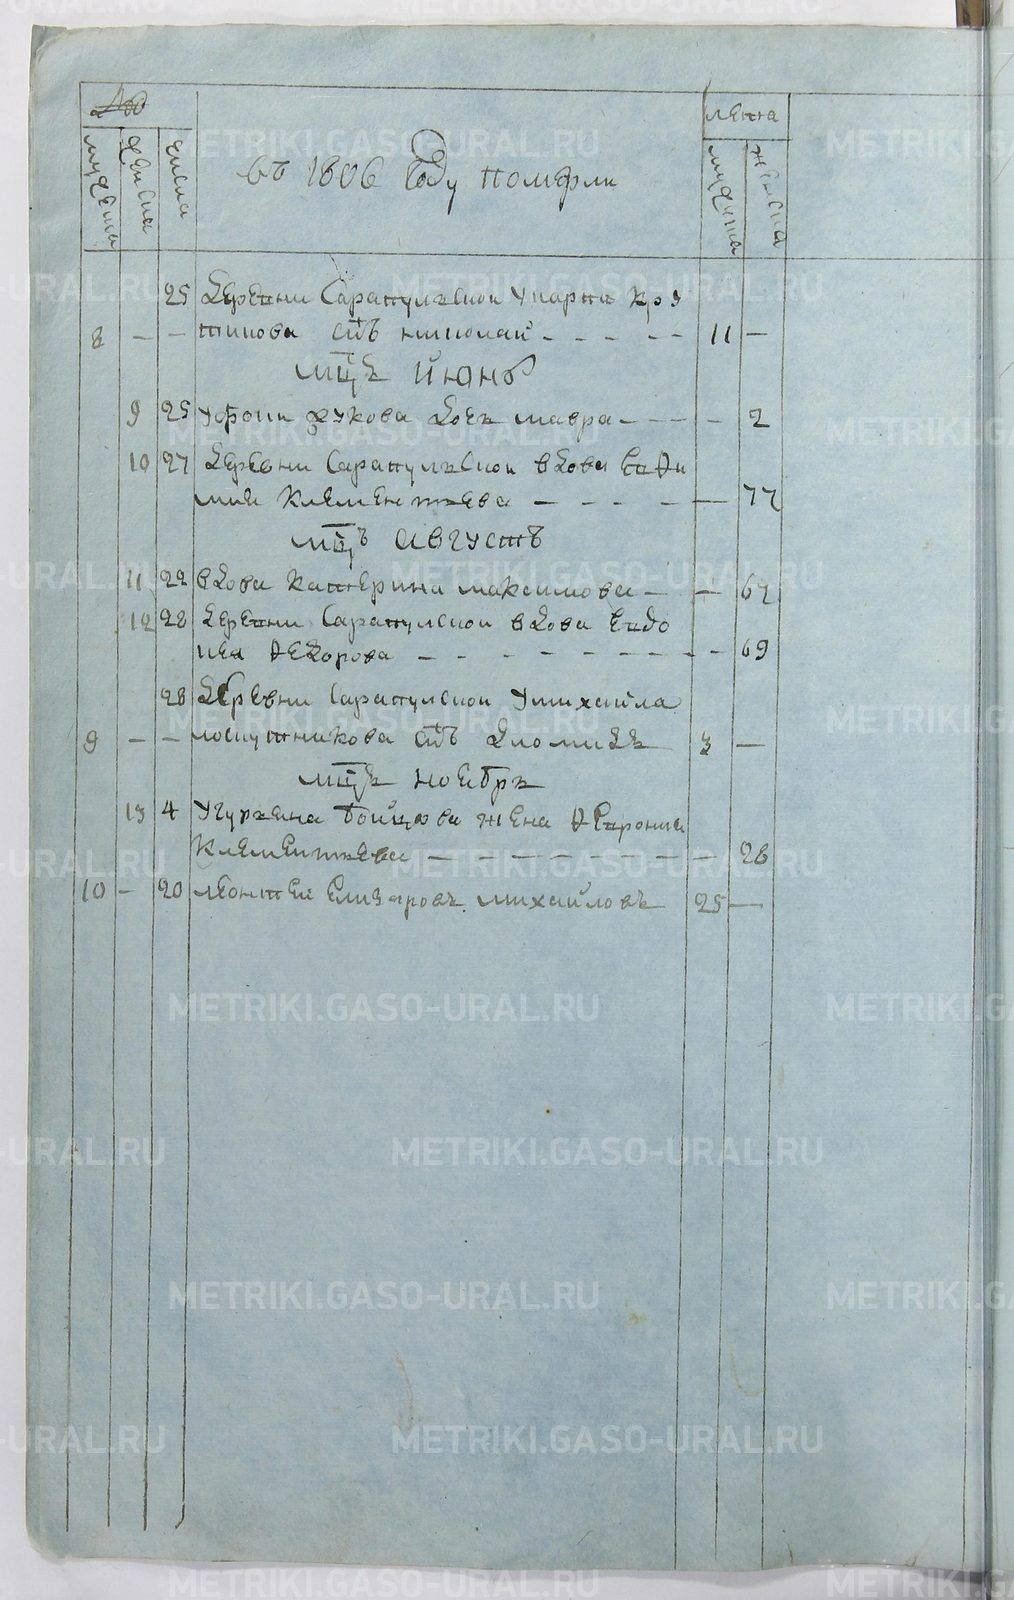 лета
мужеска женска числа въ 1806 году померли мужеска женска
25 деревни Сарапулской
8 — — тинова сынъ николай — — — — 11 —
мцъ июнь
9 25 жукова дочь мавра — — — — 2
10 27 деревни Сарапулской вдова Евдо
мия клементьева — — — — — 77
мцъ августъ
11 22 вдова катерина максимова — — 67
12 28 деревни Сарапулской вдова Евдо
кея Федорова — — — — — — — — 69
28 деревни Сарапулской у михайла
9 — — лоскутникова сынъ 3 —
мцъ ноебрь
13 4 бойцова жена Февронья
Клементьева — — — — — — — 26
10 — 20 леонтей Елизаровъ михайловъ 25 —
METRIKI.GASO-URAL.RU